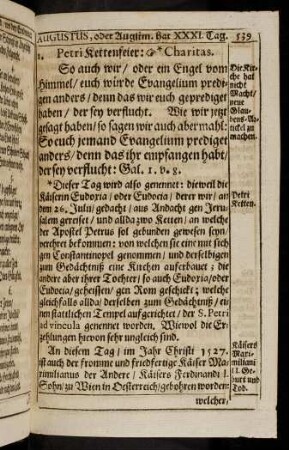 AUGUSTUS, oder Augstm. hat XXXI. Tag. 539
1. Petri Kettenfeier: Charitas.
So auch wir / oder ein Engel vom
Himmel / euch würde Evangelium predi-
gen anders / denn das wir euch geprediget
haben / der sey verflucht. Wie wir jetzt
gesagt haben / so sagen wir auch abermahl:
So euch jemand Evangelium prediget
anders / denn das ihr empfangen habt /
der sey verflucht: Gal. 1. v. 8.
Die Kir-
che hat
nicht
Macht /
neue
Glau-
bens-Ar-
tickel zu
machen.
*Dieser Tag wird also genennet: dieweil die
Käiserin Eudoxia / oder Eudocia / derer wir / an
dem 26. Julii / gedacht / aus Andacht gen Jeru-
salem gereiset / und allda zwo Ketten / an welche
der Apostel Petrus sol gebunden gewesen seyn /
verehret bekommen: von welchen sie eine mit sich
gen Constantinopel genommen / und derselbigen
zum Gedächtniß eine Kirchen aufferbauet; die
andere aber ihrer Tochter / so auch Eudoxia / oder
Eudocia / geheissen / gen Rom geschickt; welche
gleichfalls allda / derselben zum Gedächtniß / ei-
nen stattlichen Tempel auffgerichtet / der S. Petri
ad vincula genennet worden. Wiewol die Er-
zehlungen hievon sehr ungleich sind.
Petri
Ketten.
An diesem Tag / im Jahr Christi 1527.
ist auch der fromme und friedfertige Käiser Ma-
ximilianus der Andere / Käisers Ferdinandi I.
Sohn / zu Wien in Oesterreich / gebohren worden:
Käisers
Maxi-
miliani
II. Ge-
burt und
Tod.
welcher /